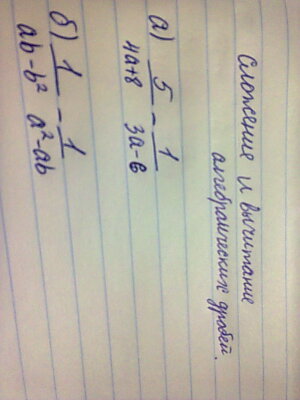 Сложение и вычитание
алгебраических дробей.
а) 5/(4a+8) - 1/(3a-6)
б) 1/(ab-b²) - 1/(a²-ab)